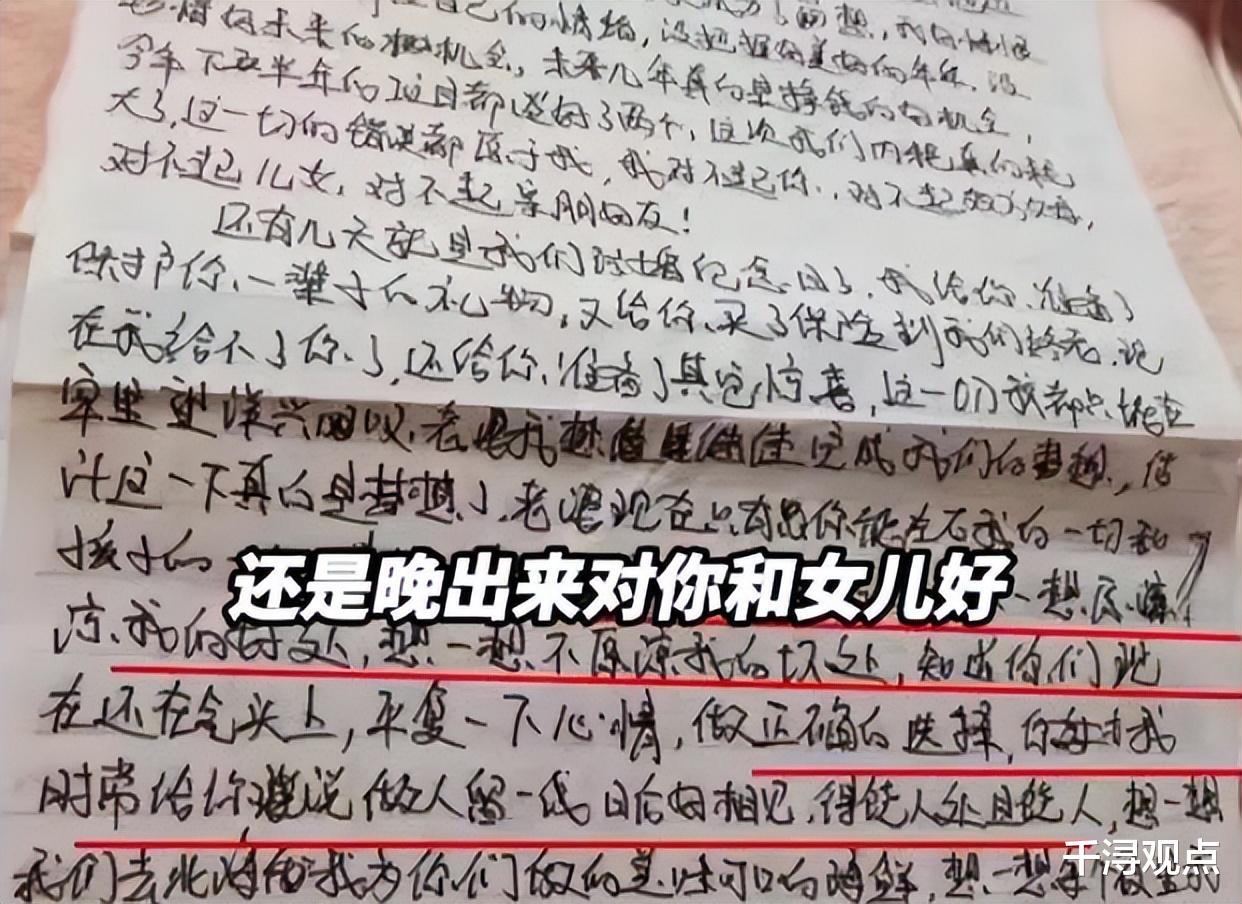 自己的情绪,没把握好美好的年华,没
好未来的机会,未来几年真的是挣钱的好机会,
今年下半年的项目都谈好了两个,这次我们内耗真的耗
大了,这一切的错误都原于我,我对不起你,对不起
对不起儿女,对不起亲朋好友!
还有几天就是我们结婚纪念日了,我给你准备了
保护你一辈子的礼物,又给你买了保险到我们终老,现
在我给不了你了,还给你准备了其它惊喜,这一切我都只能在
这里望洋兴叹,老婆我想继续完成我们的梦想,估
计这一下真的是梦想了,老婆现在只有你能左右我的一切和
孩子的
还是晚出来对你和女儿好
想一想原谅
我的好处,想一想不原谅我的坏处,知道你们现
在还在气头上,平复一下心情,做正确的选择,我
时常给你说做人留一线日后好相见,得饶人处且饶人,想一想
我们去北海我为你们做的美味可口的海鲜,想一想
千浔观点